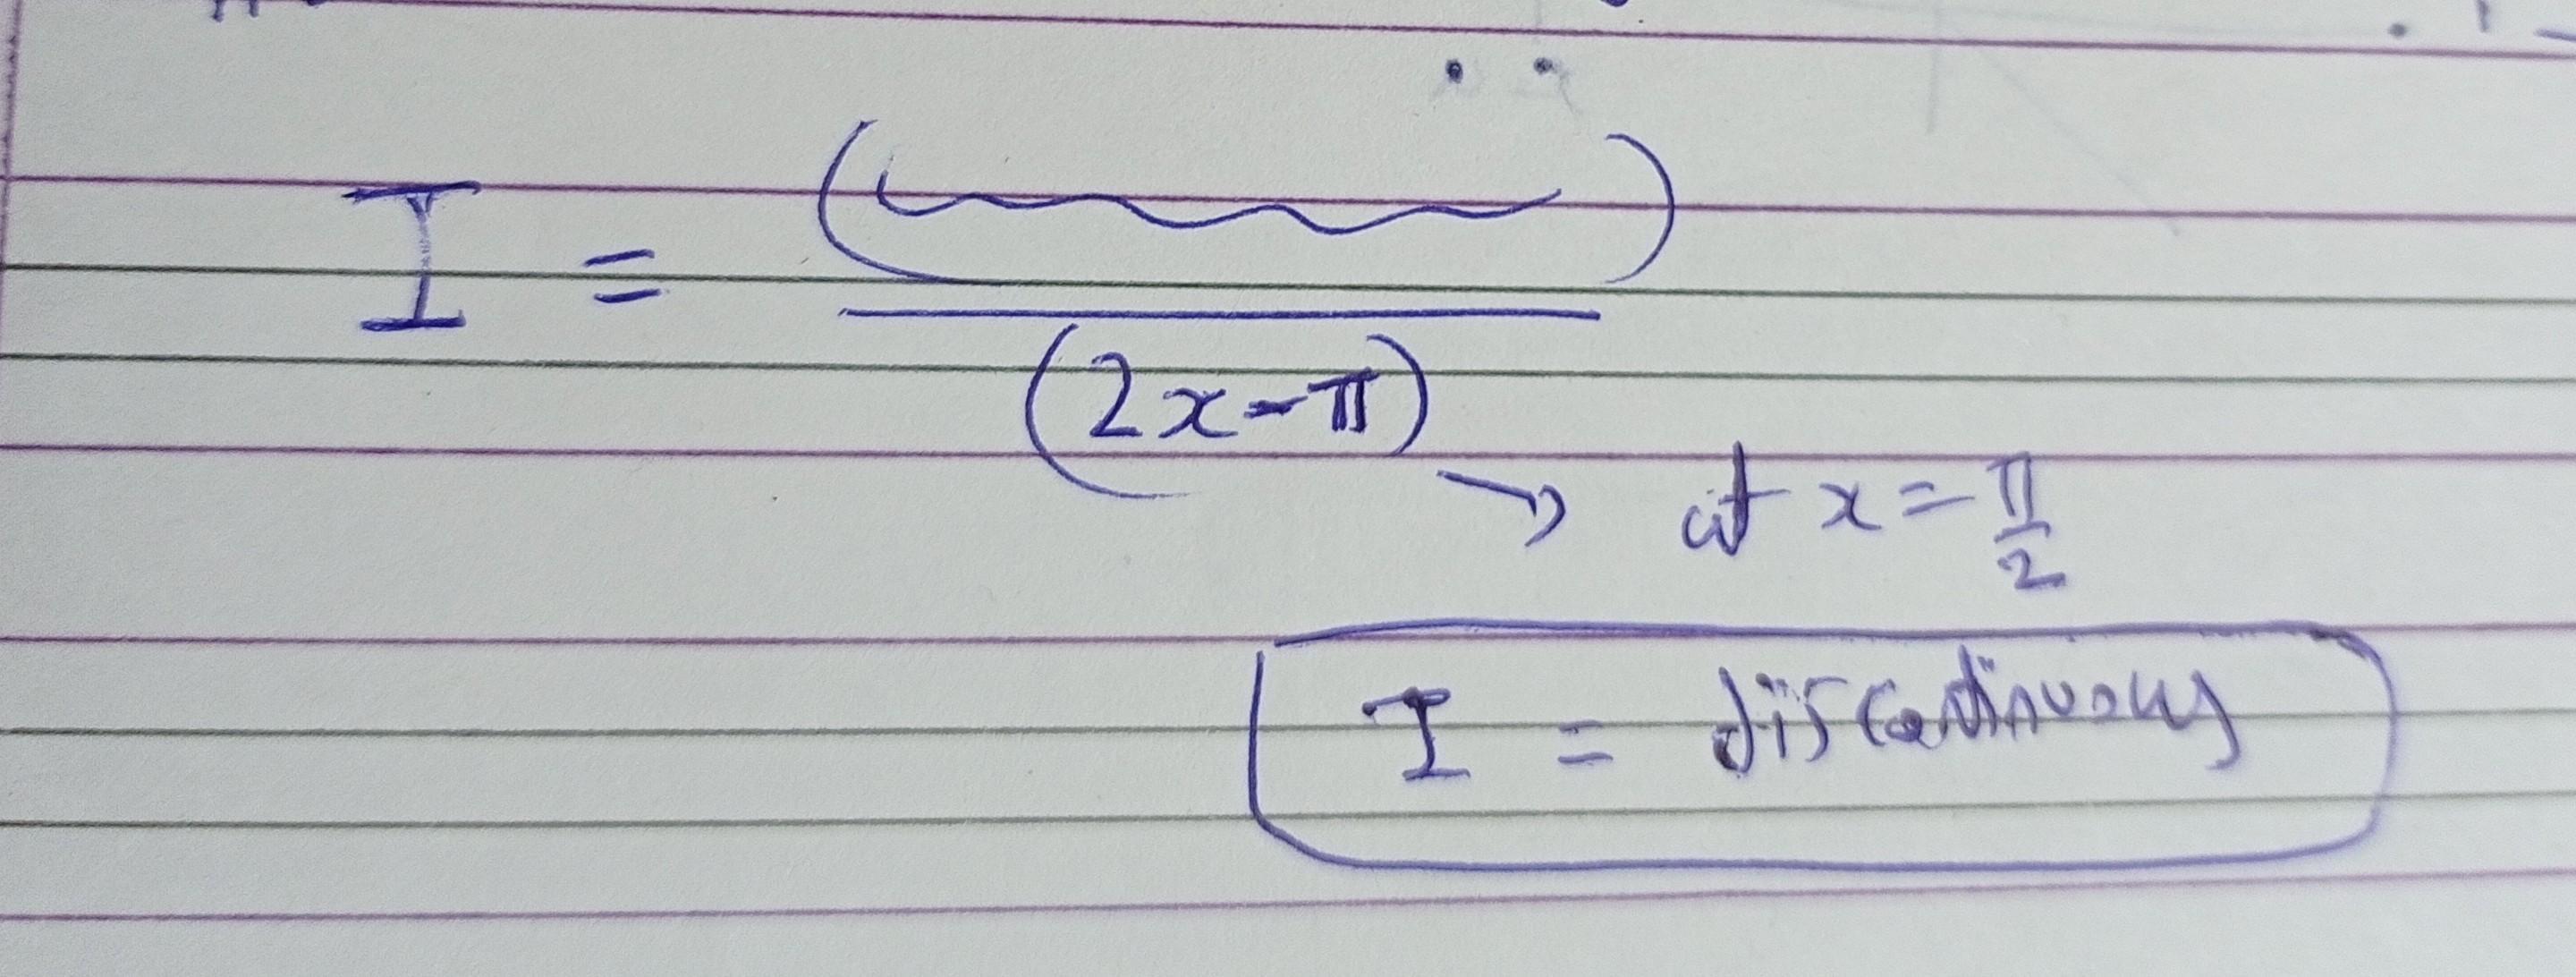 I = ( )
(2x-π)
→ at x = π/2
I = discontinuous